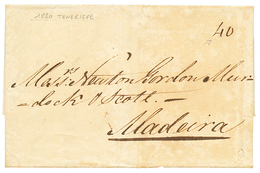 1820 TENERIFE
40
Mess.rs Newton Gordon Mur-
-dock & Scott.-
Madeira